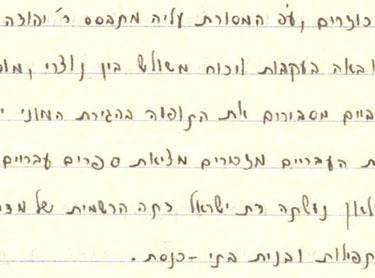 כוזרים, עפ המסורת עליה מתבסס ר' יהודה
ובאה בעקבות ויכוח משולש בין נוצרי, מוס
מסבירים את התופעה בהגירת המוני י
ת העבריים מזכורים מציאת ספרים עבריים
נעשתה דת ישראל דתה הרשמית של מדי
ובנית בתי-כנסת.